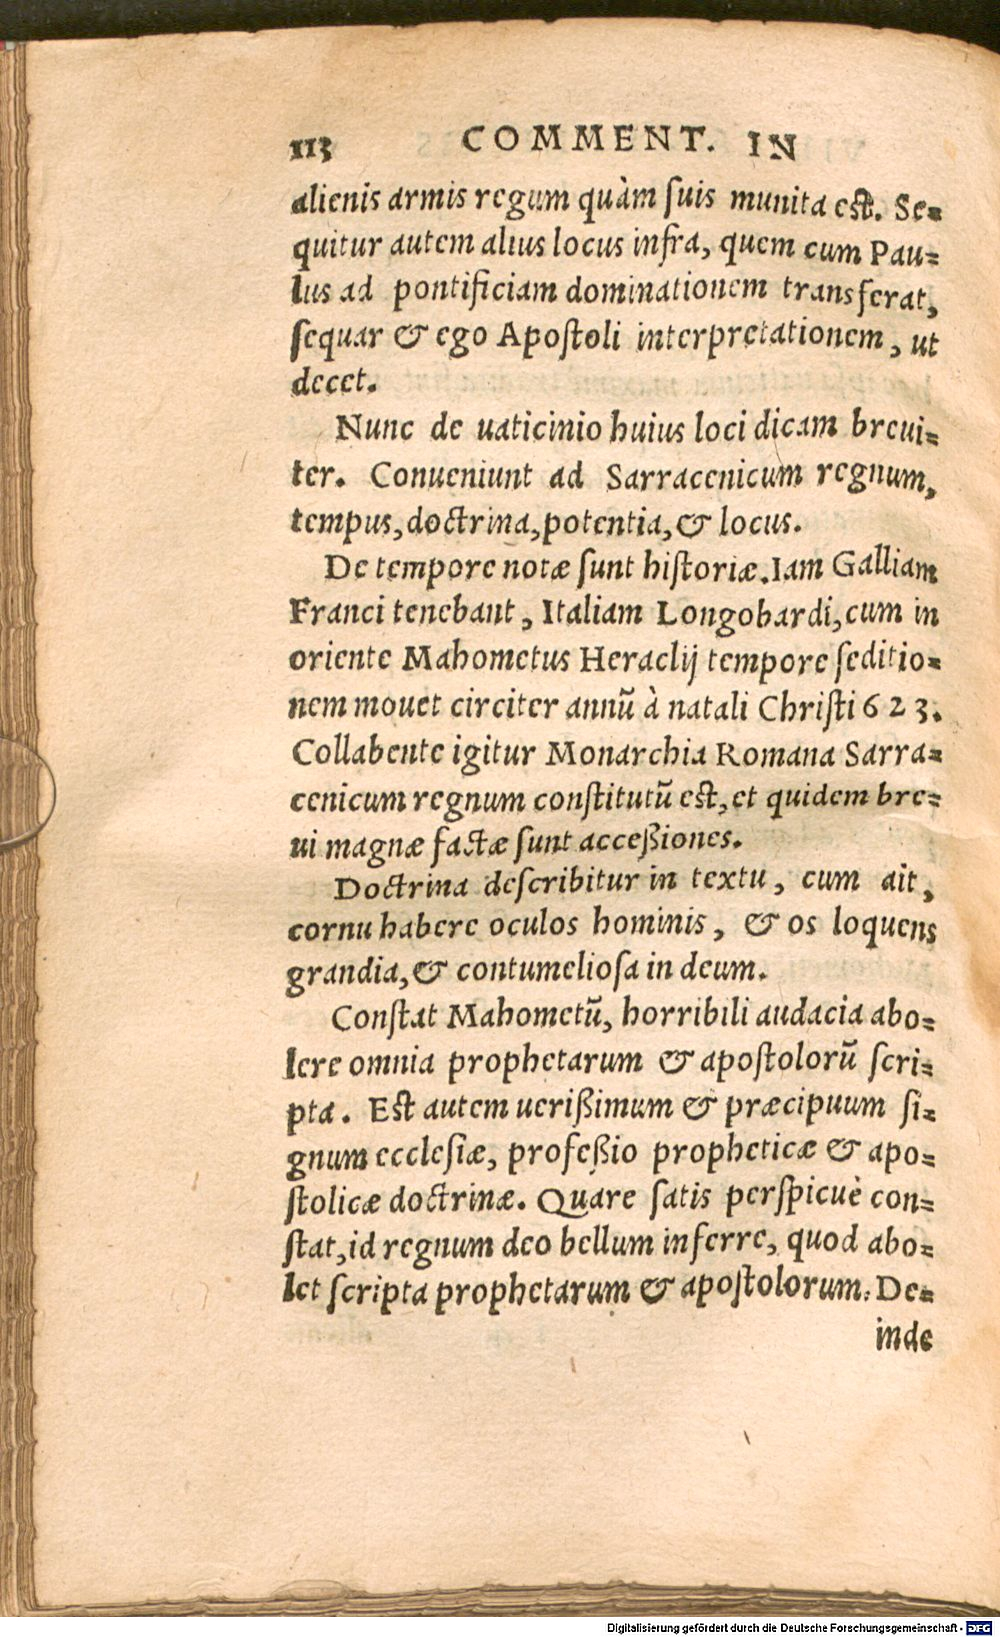 113 COMMENT. IN
alienis armis regum quàm ſuis munita eſt. Se=
quitur autem alius locus infra, quem cum Pau=
lus ad pontificiam dominationem transferat,
ſequar & ego Apoſtoli interpretationem, ut
decet.
Nunc de uaticinio huius loci dicam breui=
ter. Conueniunt ad Sarracenicum regnum,
tempus, doctrina, potentia, & locus.
De tempore notæ ſunt hiſtoriæ. Iam Galliam
Franci tenebant, Italiam Longobardi, cum in
oriente Mahometus Heraclij tempore ſeditio=
nem mouet circiter annũ à natali Chriſti 623.
Collabente igitur Monarchia Romana Sarra=
cenicum regnum conſtitutũ eſt, et quidem bre=
ui magnæ factæ ſunt acceßiones.
Doctrina deſcribitur in textu, cum ait,
cornu habere oculos hominis, & os loquens
grandia, & contumelioſa in deum.
Conſtat Mahometũ, horribili audacia abo=
lere omnia prophetarum & apoſtolorũ ſcri=
pta. Eſt autem uerißimum & præcipuum ſi=
gnum eccleſiæ, profeßio propheticæ & apo=
ſtolicæ doctrinæ. Quare ſatis perſpicuè con=
ſtat, id regnum deo bellum inferre, quod abo=
let ſcripta prophetarum & apoſtolorum. De=
inde
Digitalisierung gefördert durch die Deutsche Forschungsgemeinschaft - DFG